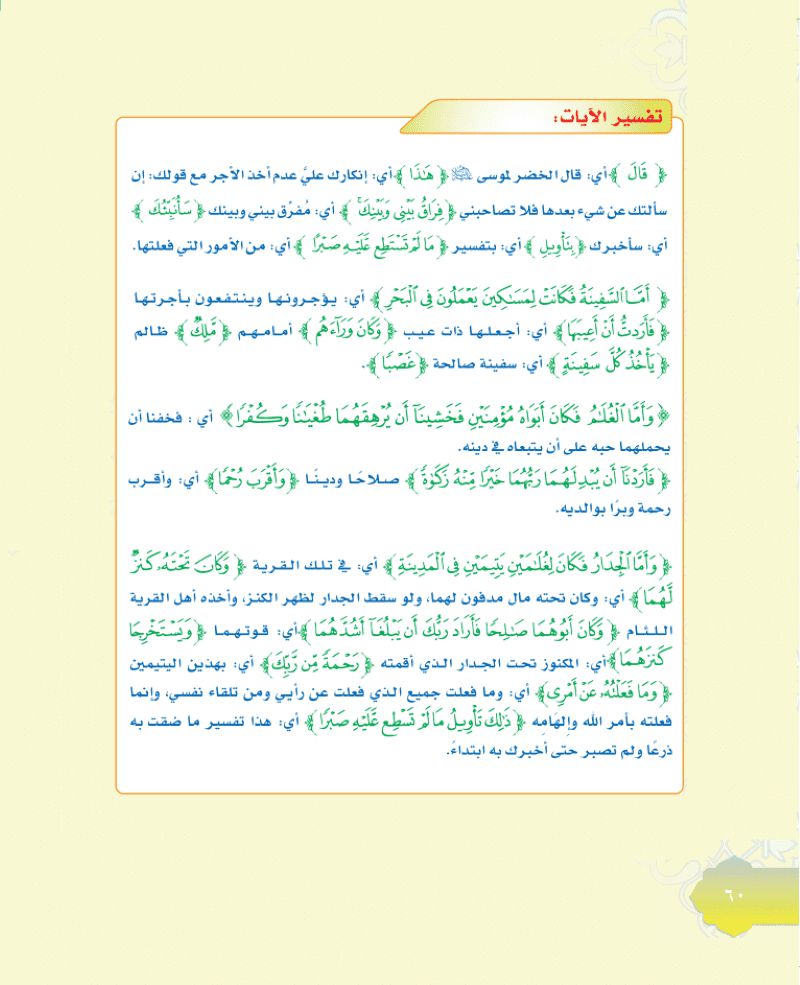 تفسير الآيات:
﴿ قَالَ ﴾ أي: قال الخضر لموسى ﷺ ﴿ هَٰذَا ﴾ أي: إنكارك عليَّ عدم أخذ الأجر مع قولك: إن
سألتك عن شيء بعدها فلا تصاحبني ﴿ فِرَاقُ بَيْنِي وَبَيْنِكَ ۚ ﴾ أي: مُفرِّق بيني وبينك ﴿ سَأُنَبِّئُكَ ﴾
أي: سأخبرك ﴿ بِتَأْوِيلِ ﴾ أي: بتفسير ﴿ مَا لَمْ تَسْتَطِع عَّلَيْهِ صَبْرًا ﴾ أي: من الأمور التي فعلتها.
﴿ أَمَّا السَّفِينَةُ فَكَانَتْ لِمَسَٰكِينَ يَعْمَلُونَ فِي الْبَحْرِ ﴾ أي: يؤجرونها وينتفعون بأجرتها
﴿ فَأَرَدتُّ أَنْ أَعِيبَهَا ﴾ أي: أجعلها ذات عيب ﴿ وَكَانَ وَرَآءَهُم ﴾ أمامهم ﴿ مَّلِكٌ ﴾ ظالم
﴿ يَأْخُذُ كُلَّ سَفِينَةٍ ﴾ أي: سفينة صالحة ﴿ غَصْبًا ﴾.
﴿ وَأَمَّا الْغُلَٰمُ فَكَانَ أَبَوَاهُ مُؤْمِنَيْنِ فَخَشِينَآ أَن يُرْهِقَهُمَا طُغْيَٰنًا وَكُفْرًا ﴾ أي : فخفنا أن
يحملهما حبه على أن يتبعاه في دينه.
﴿ فَأَرَدْنَآ أَن يُبْدِلَهُمَا رَبُّهُمَا خَيْرًا مِّنْهُ زَكَوٰةً ﴾ صلاحًا ودينًا ﴿ وَأَقْرَبَ رُحْمًا ﴾ أي: وأقرب
رحمة وبرًا بوالديه.
﴿ وَأَمَّا الْجِدَارُ فَكَانَ لِغُلَٰمَيْنِ يَتِيمَيْنِ فِي الْمَدِينَةِ ﴾ أي: في تلك القرية ﴿ وَكَانَ تَحْتَهُۥ كَنزٌ
لَّهُمَا ﴾ أي: وكان تحته مال مدفون لهما، ولو سقط الجدار لظهر الكنز، وأخذه أهل القرية
اللئام ﴿ وَكَانَ أَبُوهُمَا صَٰلِحًا فَأَرَادَ رَبُّكَ أَن يَبْلُغَآ أَشُدَّهُمَا ﴾ أي: قوتهما ﴿ وَيَسْتَخْرِجَا
كَنزَهُمَا ﴾ أي: المكنوز تحت الجدار الذي أقمته ﴿ رَحْمَةً مِّن رَّبِّكَ ﴾ أي: بهذين اليتيمين
﴿ وَمَا فَعَلْتُهُۥ عَنْ أَمْرِي ﴾ أي: وما فعلت جميع الذي فعلت عن رأيي ومن تلقاء نفسي، وإنما
فعلته بأمر الله وإلهامه ﴿ ذَٰلِكَ تَأْوِيلُ مَا لَمْ تَسْطِع عَّلَيْهِ صَبْرًا ﴾ أي: هذا تفسير ما ضقت به
ذرعًا ولم تصبر حتى أخبرك به ابتداءً.
٦٠